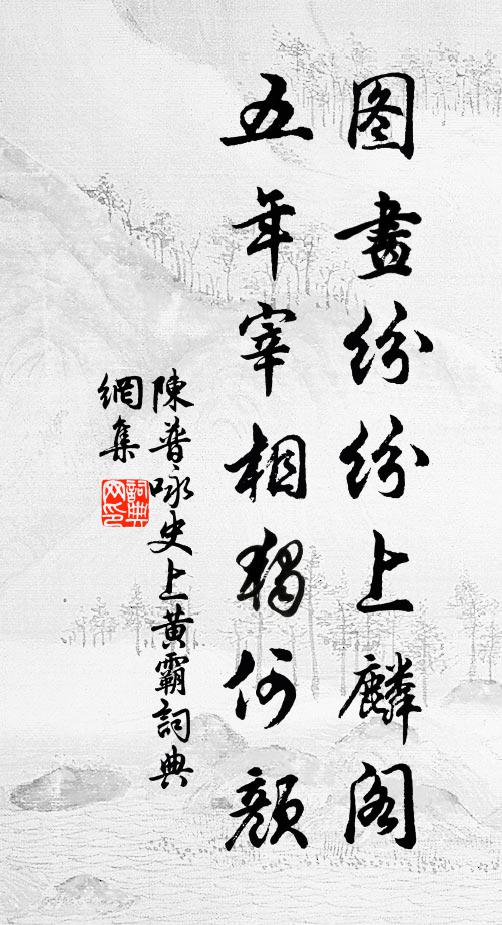 图畫紛紛上麟阁
五年宰相獨何顔
陳普咏史上黄霸詞典
網集
詞典網印